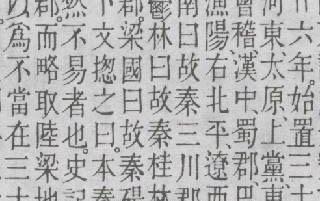 十六年。始置三十
河東太原、上黨、東
會稽、漢中、蜀郡、巴
漁陽、右北平、遼西
南曰故秦三川郡
鬱林曰故秦桂林
郡。梁國曰故秦碭
下文揔之曰。本秦
然不易者也。史記
郡。而略取陸梁地
以為不當在三十